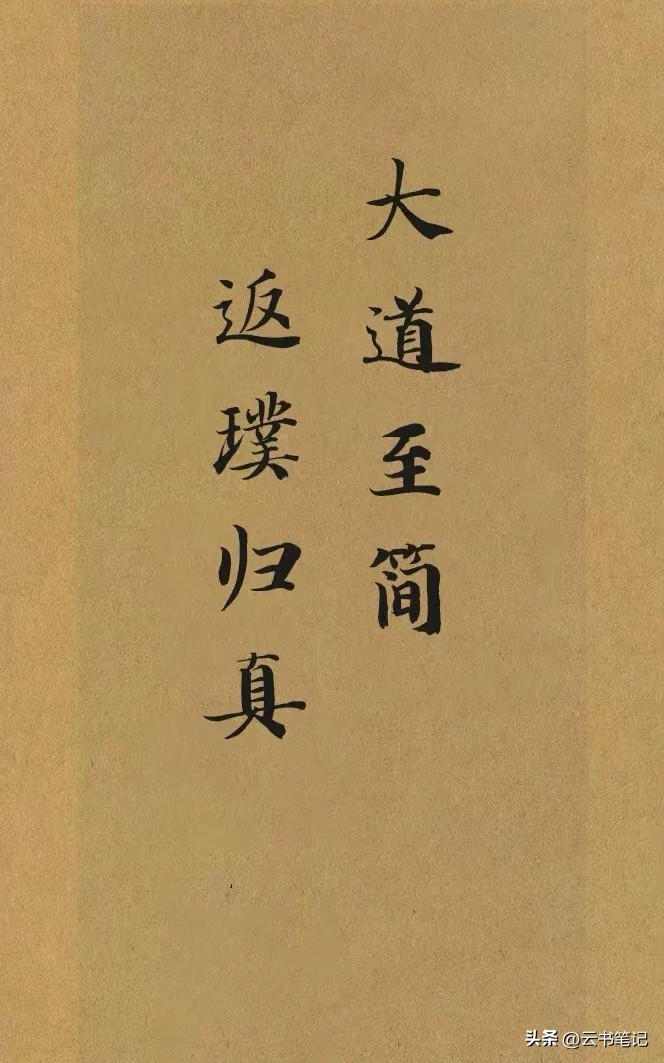 大道至简
返璞归真
头条 @云书笔记